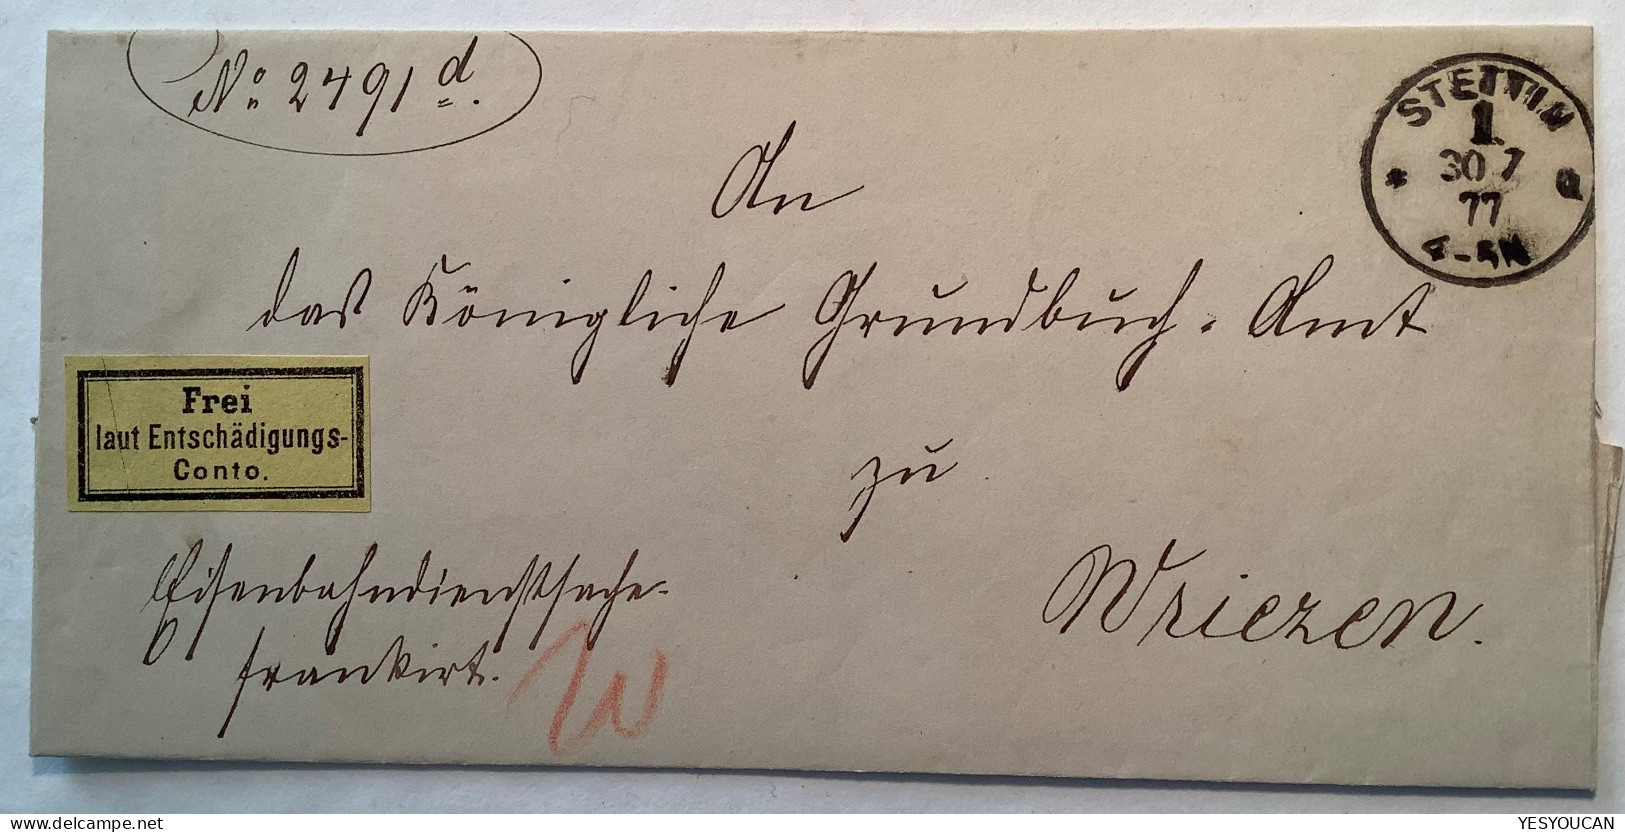 No. 2491 d.
STETTIN
1.
30 7
77
4-5N
An
das Königliche Grundbuch-Amt
Frei
laut Entschädigungs-
Conto.
zu
Wriezen.
Eisenbahndienstsache
frankirt.
W
delcampe.net
YESYOUCAN